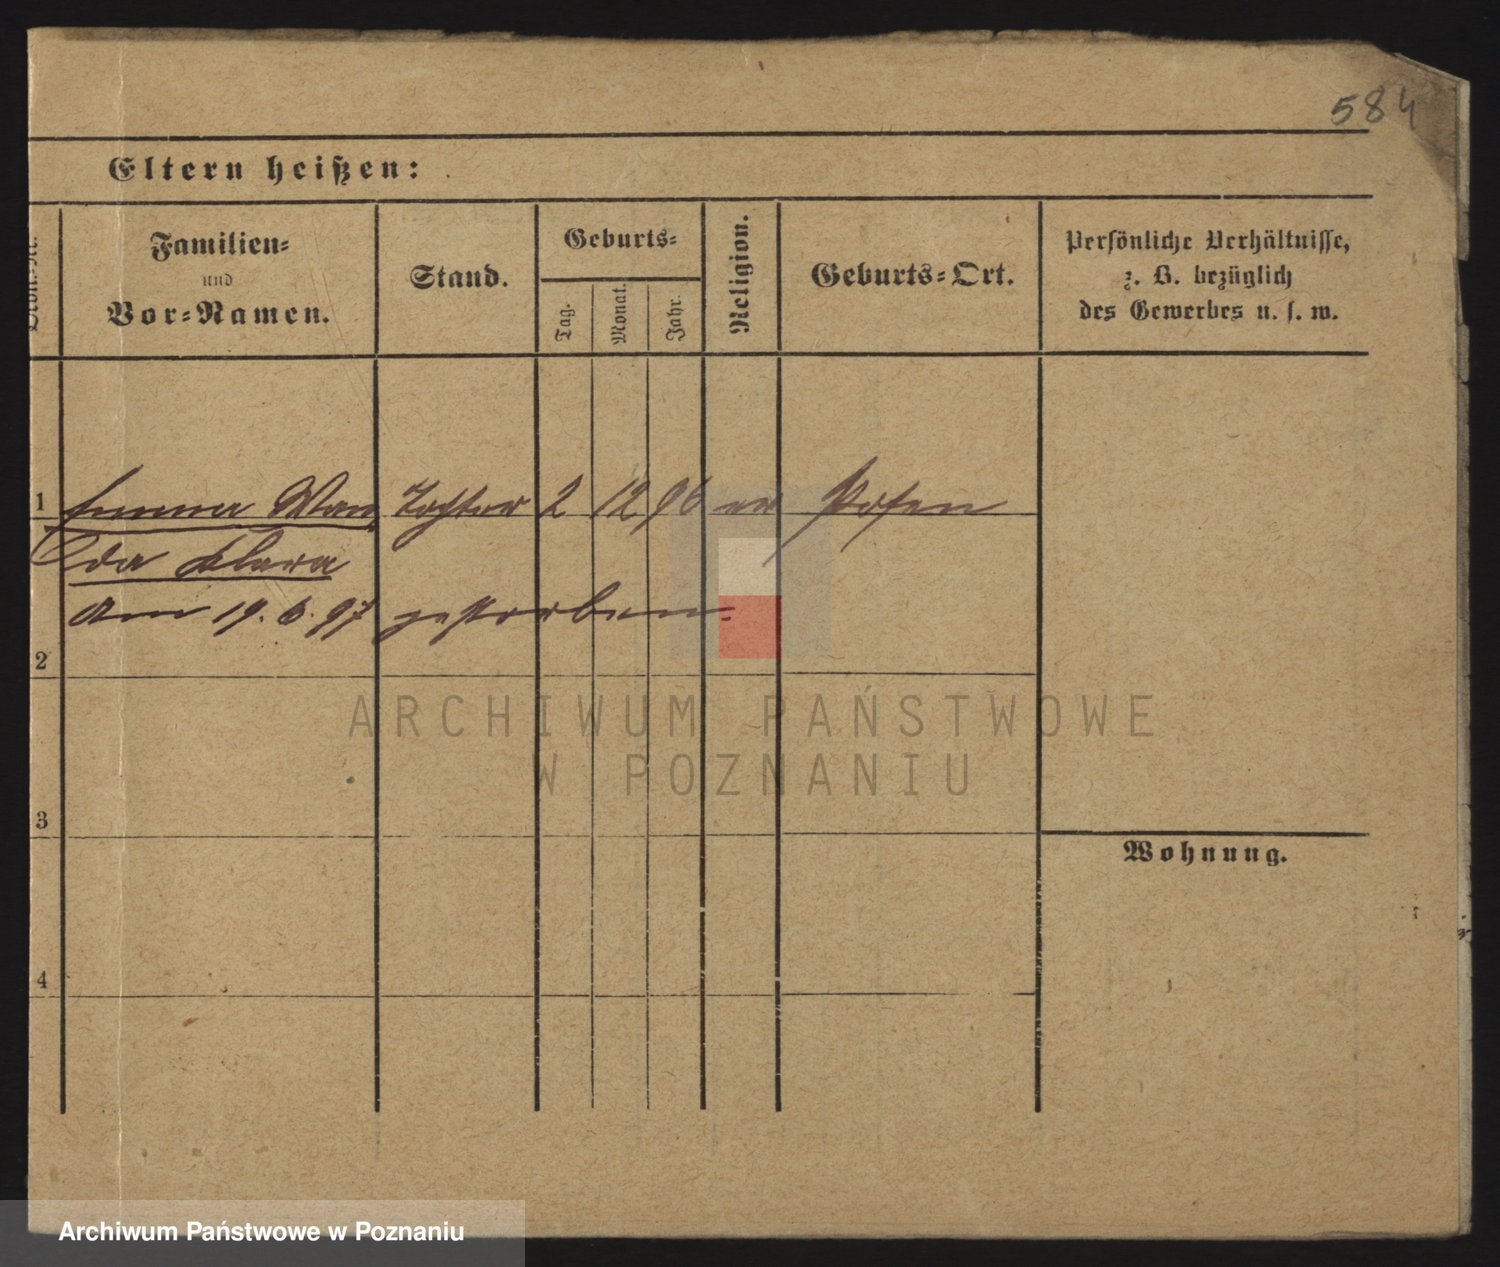 584
Eltern heißen:
Familien=
und
Vor=Namen.
Stand.
Geburts=
Tag.
Monat.
Jahr.
Religion.
Geburts=Ort.
Persönliche Verhältnisse,
z. B. bezüglich
des Gewerbes u. s. w.
1 Emma Wan Tochter 2 12 96 ev Posen
da Klara
am 19. 6. 97 gestorben.
2
ARCHIWUM PAŃSTWOWE
W POZNANIU
3
Wohnung.
4
Archiwum Państwowe w Poznaniu